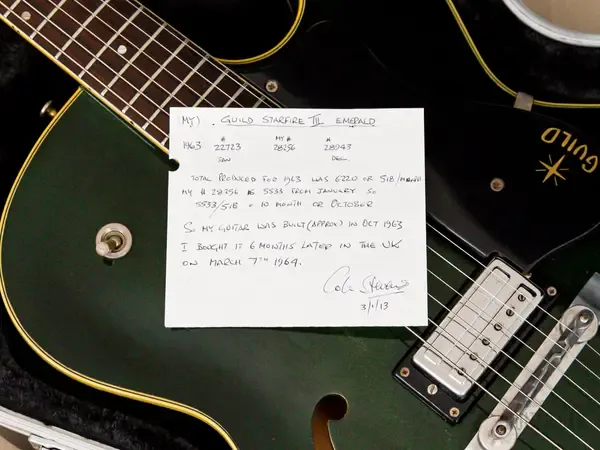 (MY) . GUILD STARFIRE III EMERALD
# MY # #
1963 22723 28256 28943
JAN DEC.
TOTAL PRODUCED FOR 1963 WAS 6220 OR 518/MONTH
MY # 28256 IS 5533 FROM JANUARY SO
5533/518 = 10 MONTH OR OCTOBER
SO MY GUITAR WAS BUILT (APPROX) IN OCT 1963
I BOUGHT IT 6 MONTHS LATER IN THE UK
ON MARCH 7TH 1964.
3/1/13
GUILD